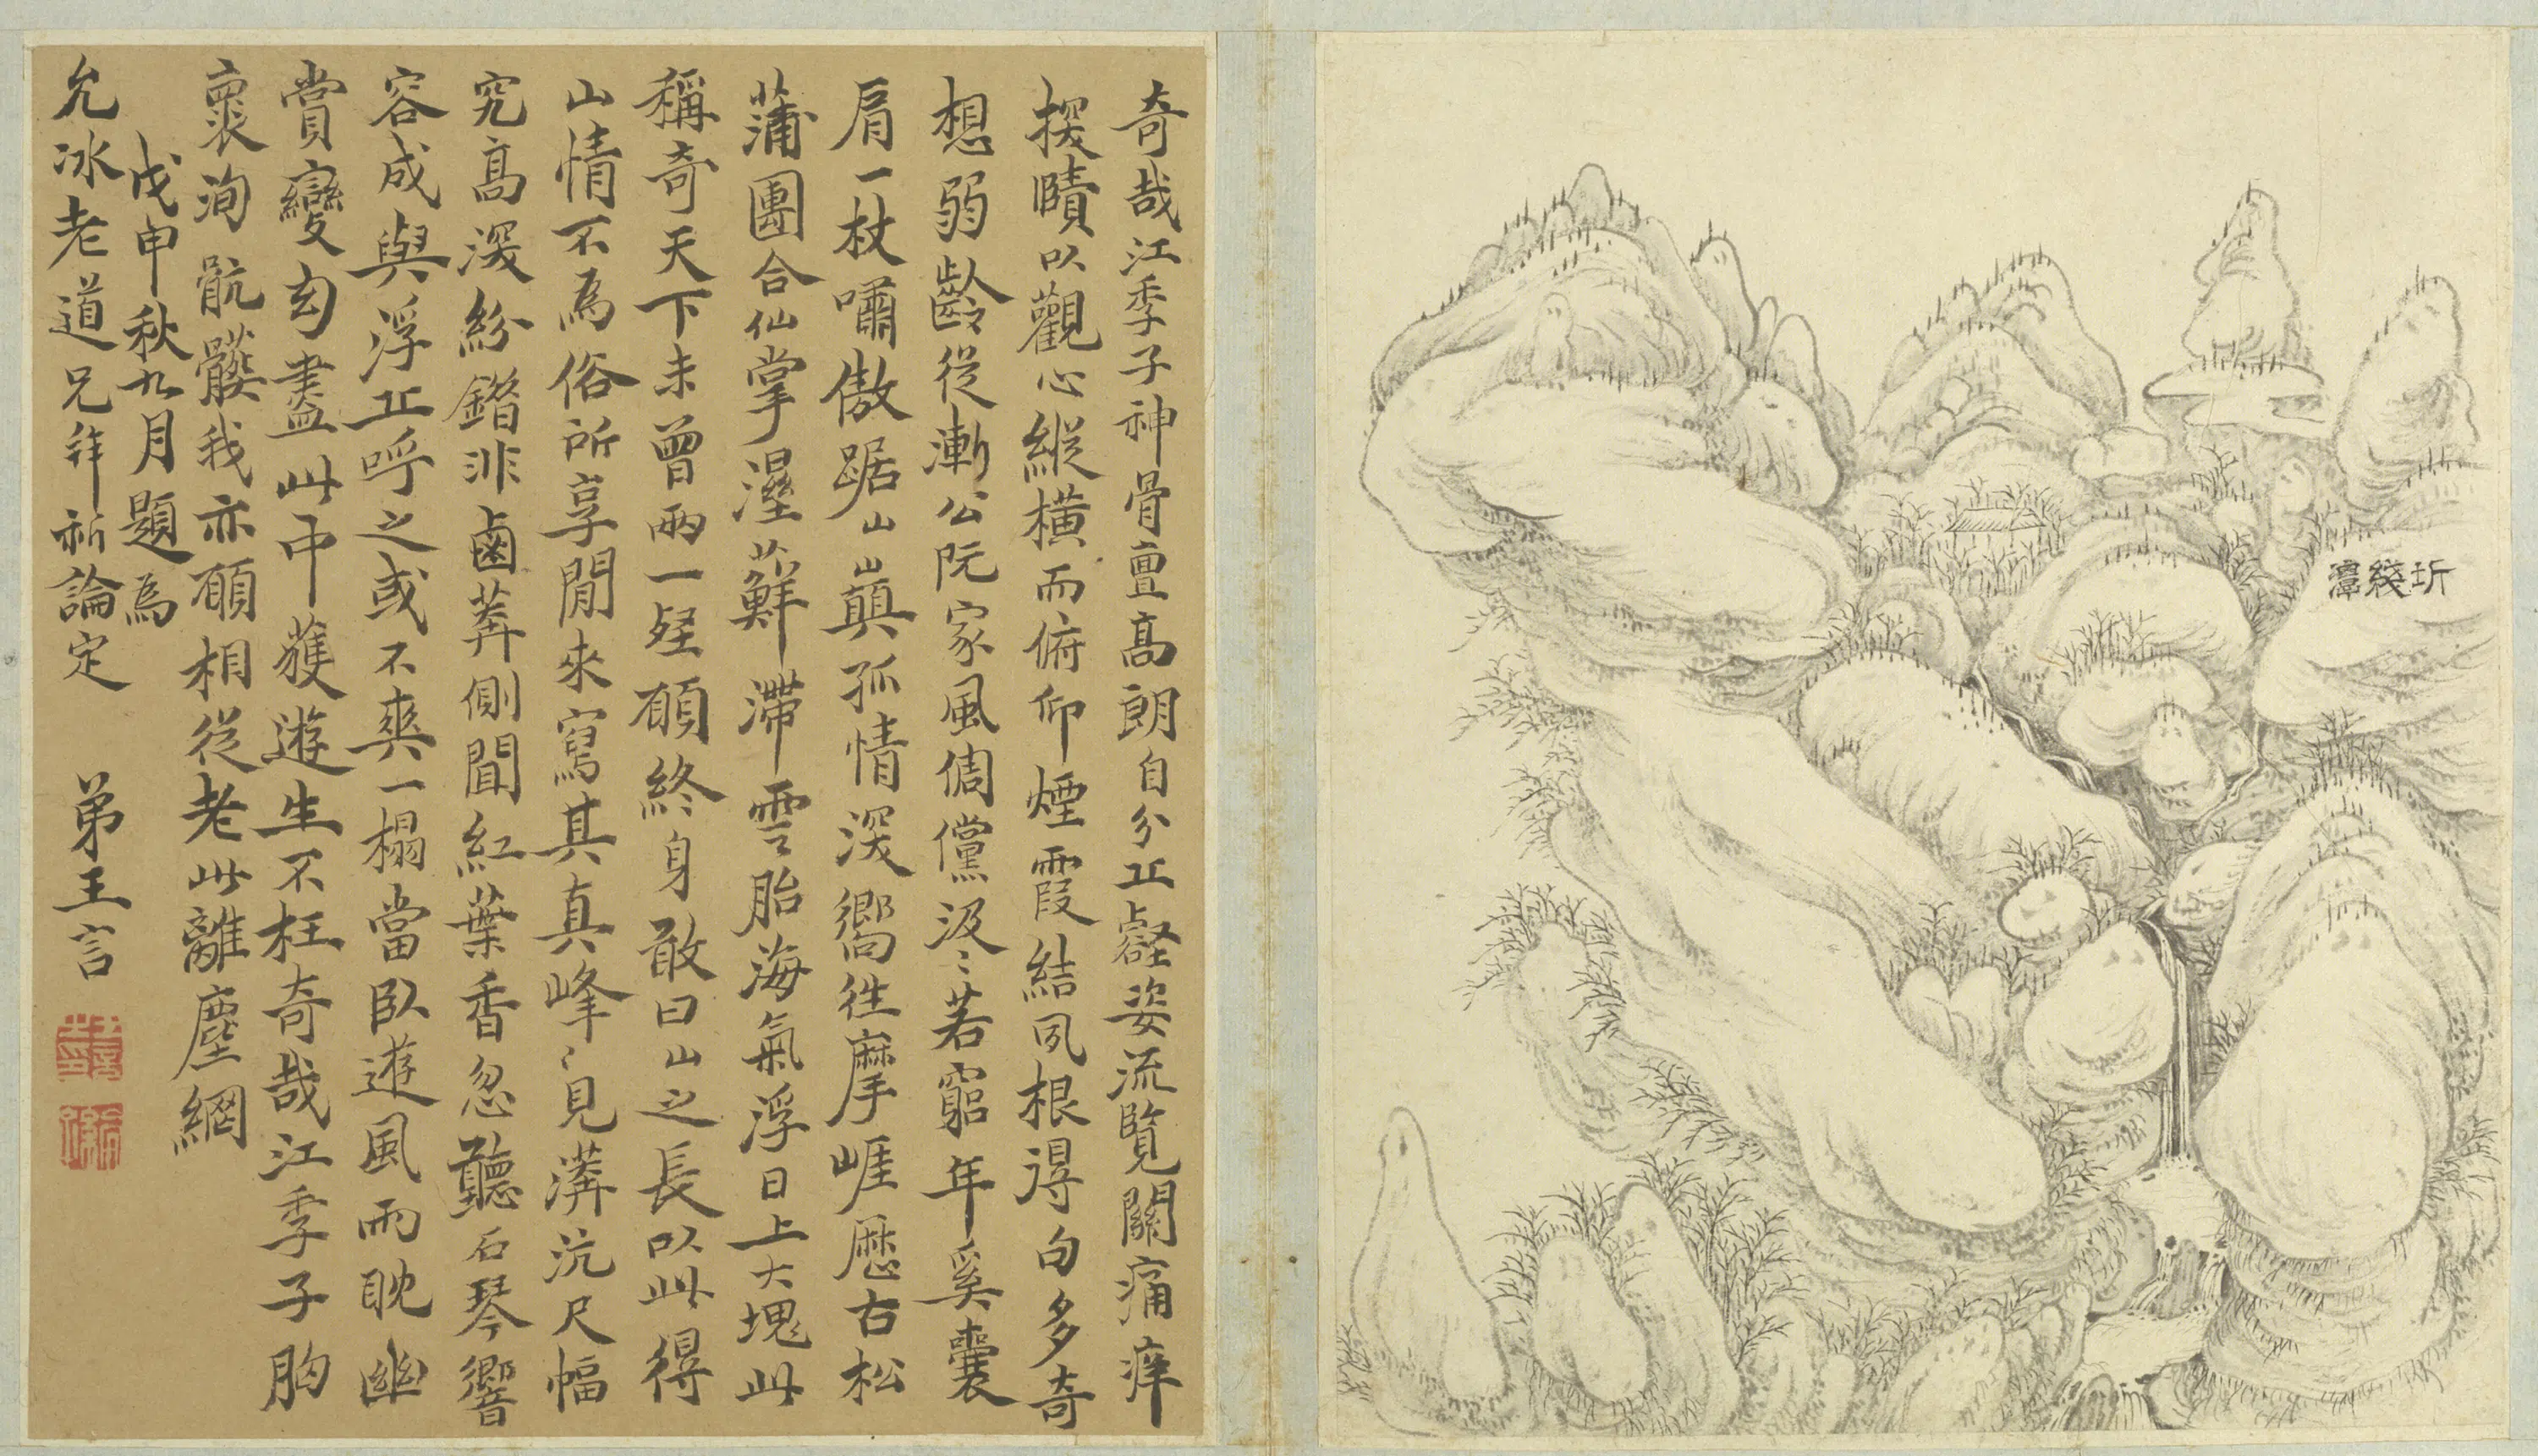 奇哉江季子神骨亶高朗自分丘壑姿流覽關痛痒
探賾以觀心縱橫而俯仰煙霞結夙根得句多奇
想弱齡從漸公阮家風倜儻汲〻若窮年奚囊
肩一杖嘯傲踞山巔孤情深嚮往摩崕歷古松
蒲團合仙掌溼蘚滯雲胎海氣浮日上大塊此
稱奇天下未曾兩一經願終身敢曰山之長以此得
山情不為俗所享閒來寫其真真峰〻見漭沆尺幅
究高深紛錯非鹵莽側聞紅葉香忽聽石琴響
容成與浮丘呼之或不爽一榻當臥遊風雨耽幽
賞變幻盡此中獲遊生不枉奇哉江季子胸
褱洵骯髒我亦願相從老此離塵網
戊申秋九月題為
允冰老道兄拜祈論定 弟王言